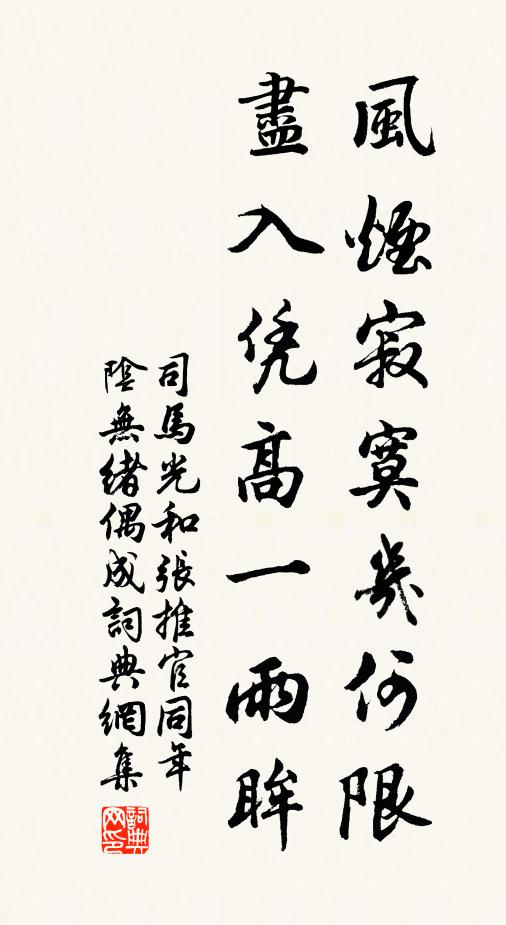 風煙寂寞幾何限
盡入凭高一兩眸
司馬光和張推官同年
陰無緒偶成詞典網集
詞典网印